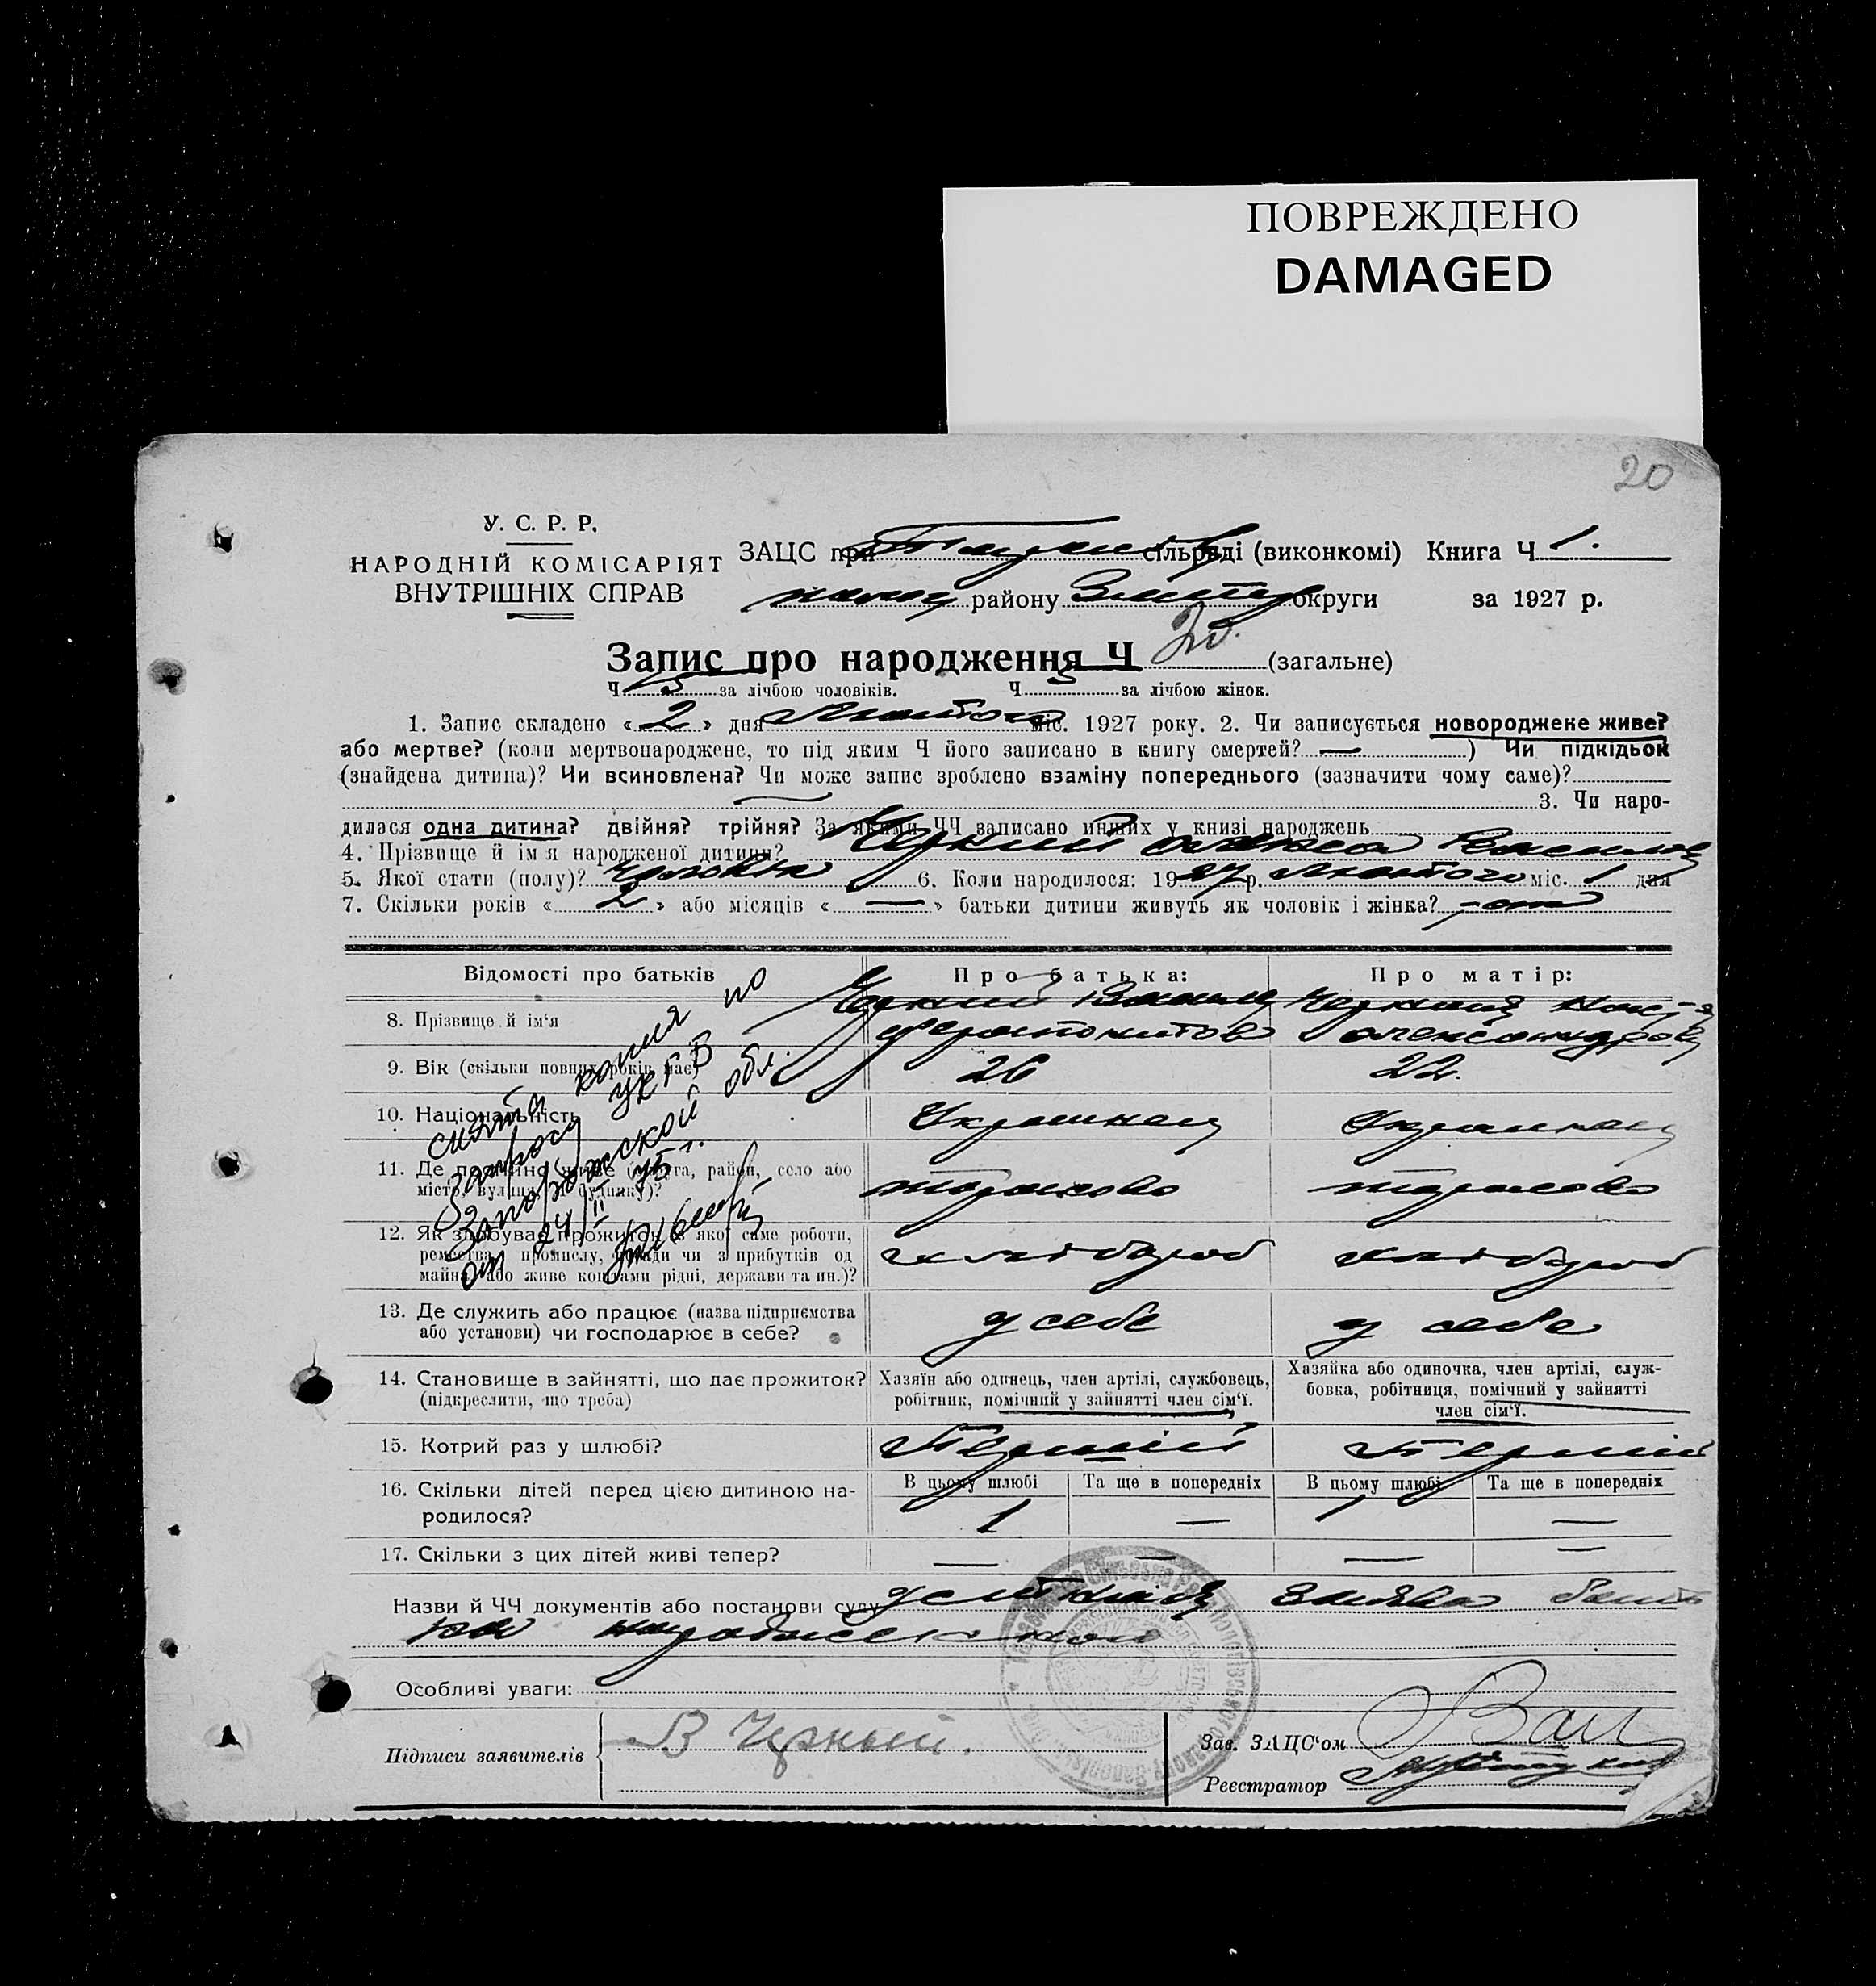 ПОВРЕЖДЕНО
DAMAGED
20
У. С. Р. Р.
НАРОДНІЙ КОМІСАРІЯТ
ВНУТРІШНІХ СПРАВ
ЗАЦС при сільраді (виконкомі) Книга Ч 1.
району округи за 1927 р.
Запис про народження Ч 20. (загальне)
Ч за лічбою чоловіків. Ч за лічбою жінок.
1. Запис складено « 2 » дня Лютого міс. 1927 року. 2. Чи записується новороджене живе?
або мертве? (коли мертвонароджене, то під яким Ч його записано в книгу смертей? — ) Чи підкідьок
(знайдена дитина)? Чи всиновлена? Чи може запис зроблено взаміну попереднього (зазначити чому саме)?
3. Чи наро-
дилася одна дитина? двійня? трійня? За якими ЧЧ записано инших у книзі народжень
4. Прізвище й ім'я народженої дитини?
5. Якої стати (полу)? 6. Коли народилося: 1927 р. Лютого міс. 1 дня
7. Скільки років « 2 » або місяців « — » батьки дитини живуть як чоловік і жінка?
Відомості про батьків
Про батька:
Про матір:
8. Прізвище й ім'я
9. Вік (скільки повних років має)
26
22.
10. Національність
Українец
Українец
11. Де постійно живе (округа, район, село або
місто, вулиця, Ч будинку)?
Тарасово
Тарасово
12. Як здобуває прожиток (з якої саме роботи,
ремества, промислу, посади чи з прибутків од
майна, або живе коштами рідні, держави та ин.)?
хлібороб
хлібороб
13. Де служить або працює (назва підприємства
або установи) чи господарює в себе?
у себе
у себе
14. Становище в зайнятті, що дає прожиток?
(підкреслити, що треба)
Хазяїн або одинець, член артілі, службовець,
робітник, помічний у зайнятті член сім'ї.
Хазяйка або одиночка, член артілі, служ-
бовка, робітниця, помічний у зайнятті
член сім'ї.
15. Котрий раз у шлюбі?
Перший
Перший
16. Скільки дітей перед цією дитиною на-
родилося?
В цьому шлюбі
Та ще в попередніх
В цьому шлюбі
Та ще в попередніх
1
—
1
—
17. Скільки з цих дітей живі тепер?
—
—
—
—
снята копия по
запросу УКГБ
Запорожской обл.
от 24/II 75 г.
Назви й ЧЧ документів або постанови суду заява
Особливі уваги:
Підписи заявителів
В Чрный.
Зав. ЗАЦС'ом
Реєстратор